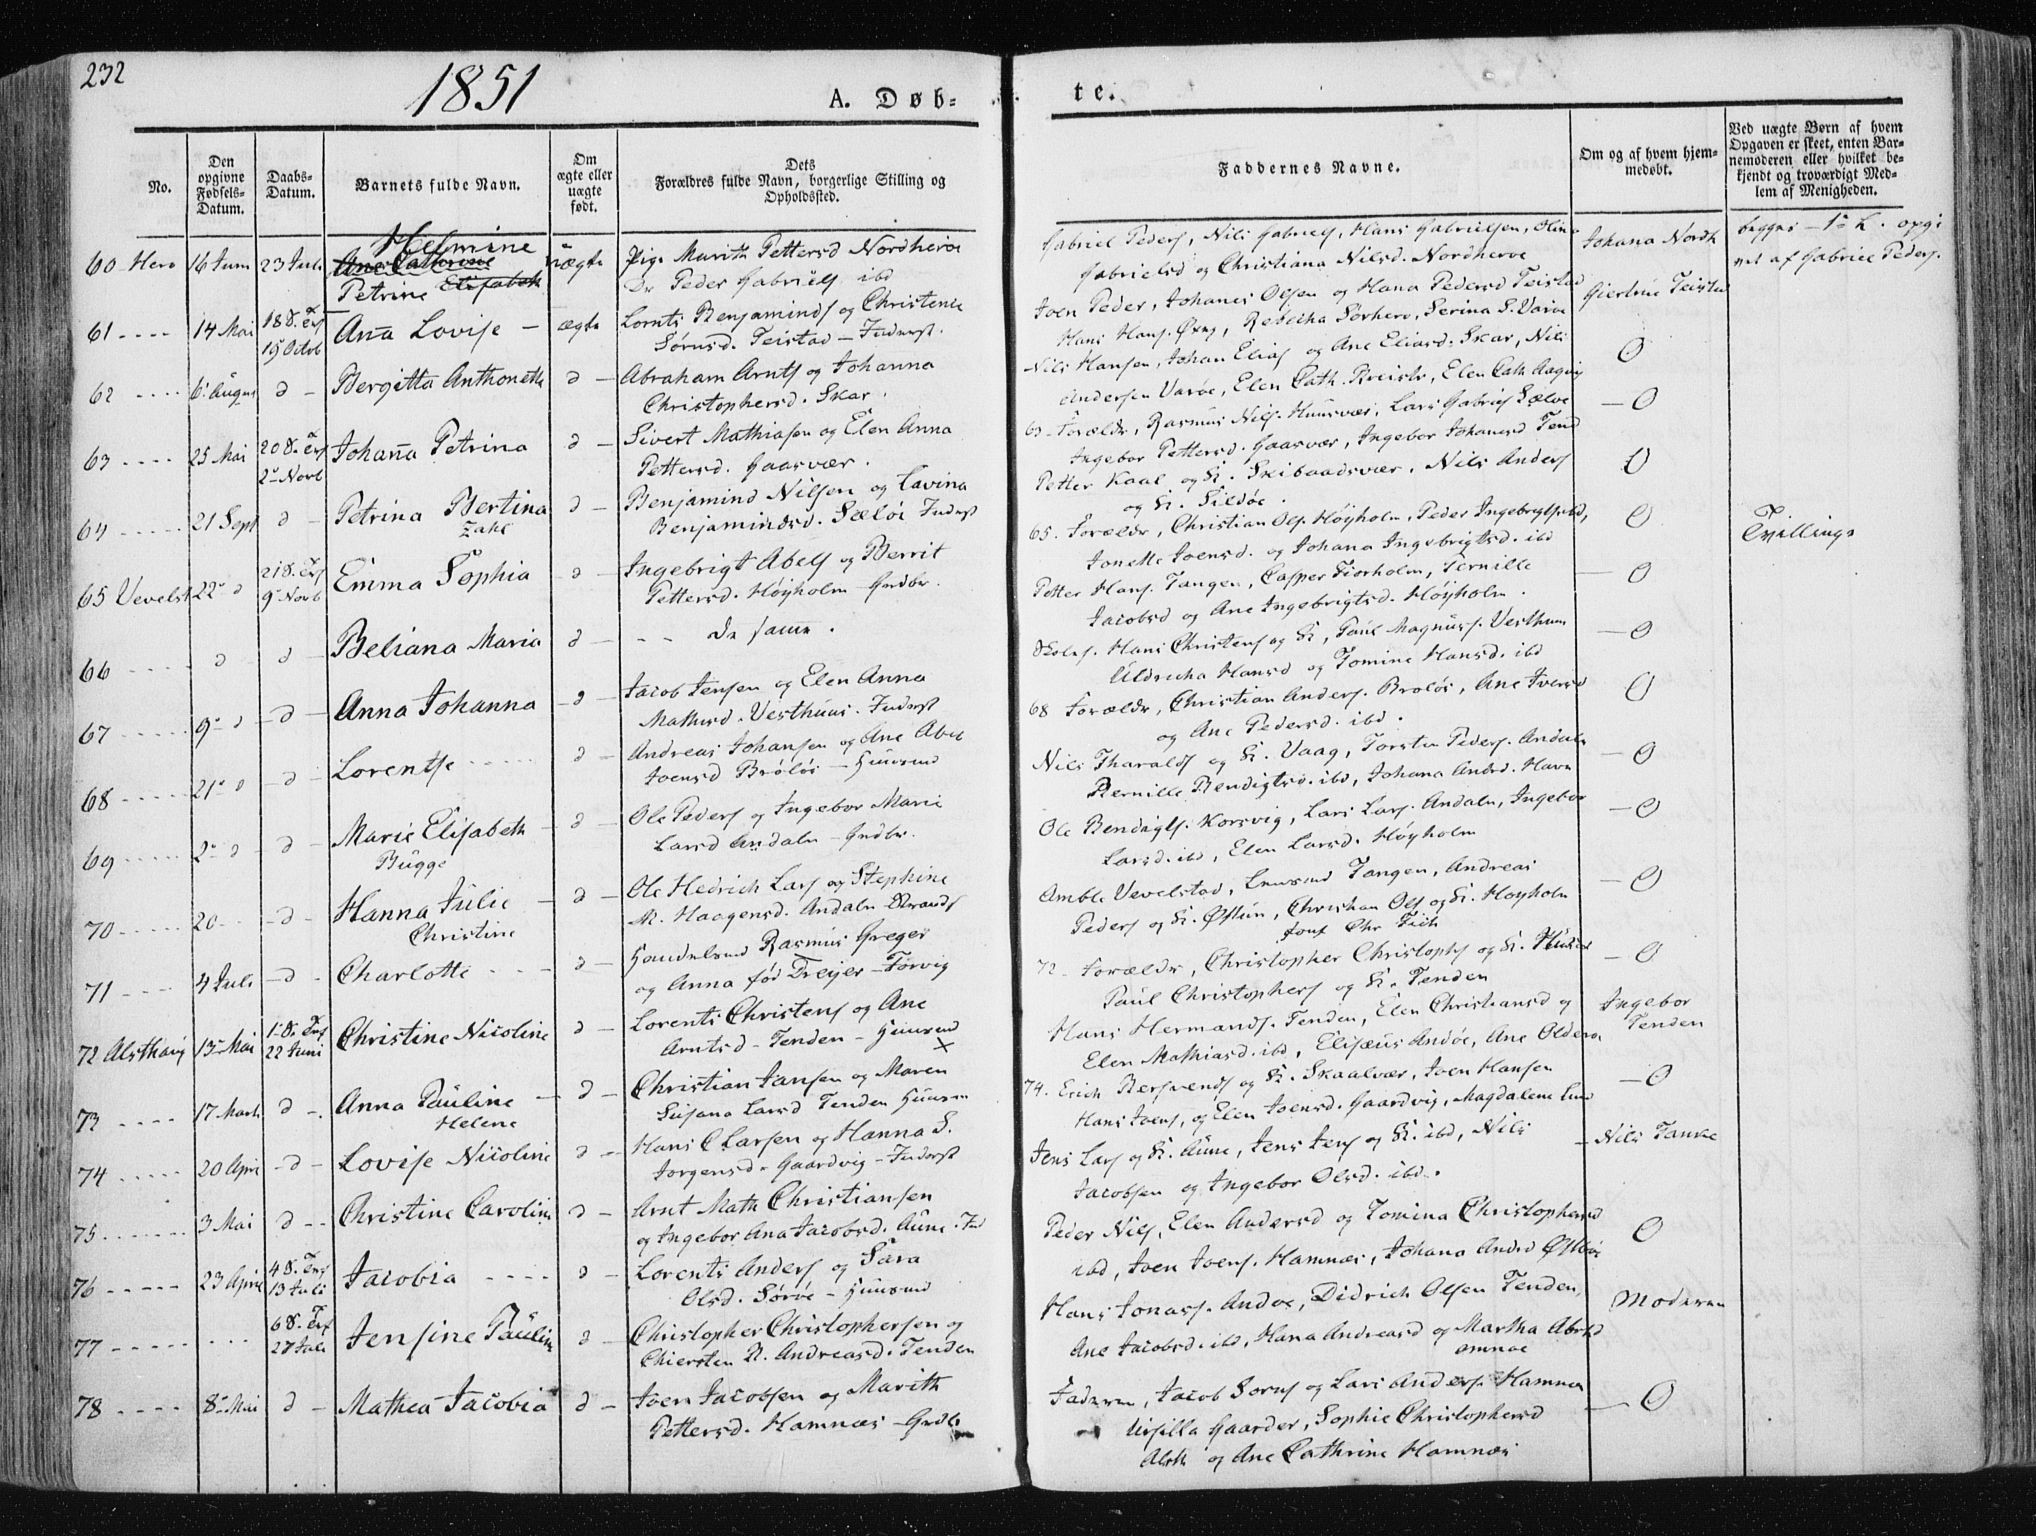 232
1851
A. Døb-
te.
No.
Den opgivne Fødsels-Datum.
Daabs-Datum.
Barnets fulde Navn.
Om ægte eller uægte født.
Dets Forældres fulde Navn, borgerlige Stilling og Opholdssted.
Faddernes Navne.
Om og af hvem hjem-medøbt.
Ved uægte Børn af hvem Opgaven er skeet, enten Bar-nemoderen eller hvilket be-kjendt og troværdigt Med-lem af Menigheden.
Helmine
60 Herø 16 Juni 23 Juli Ane Cathrine uægte Pige Marith Pettersd Nordherøe
Petrine Elisabeth Peder Gabriels ibd
61 14 Mai 18 S. Tref 19 Octob Anna Lovise ægte Lornts Benjamins og Christence
Sørnsd. Teistad Inderst.
62 6 August d Bergitta Anthonette d Abraham Arnts og Johanna
Christophersd. Skar.
63 25 Mai 20 S. Tref 2 Novb Johanna Petrina d Sivert Mathiasen og Elen Anna
Pettersd. Gaasvær.
64 21 Sept d Petrina Bertina d Benjamind Nilsen og Lavina
Zahl Benjamindsd. Sæløe Inderst
65 Vevelst 22 d 21 S. Tref 9 Novb Emma Sophia d Ingebrigt Abels og Berrit
Pettersd. Høyholm Grdbr.
66 d d Beliana Maria d De samme.
67 9 d d Anna Johanna d Jacob Jensen og Elen Anna
Mathisd. Vesthuus. Inderst
68 21 d d Lorentse d Andreas Johansen og Ane Abel
Joensd Brøløs Huusmd
69 2 d d Marie Elisabeth d Ole Peders og Ingebor Marie
Bugge Larsd Andaln Grdbr.
70 20 d Hanna Julie d Ole Hedrich Lars og Stephine
Christine M. Haagensd. Andaln Strands
71 4 Juli d Charlotte d Handelsmd Rasmus Greger
og Anna fød Dreyer Forvig
72 Alsthaug 13 Mai 1 S. Tref 22 Juni Christine Nicoline d Lorents Christens og Ane
Arntsd Tenden Huusmd
73 17 Marts d Anna Pauline d Christian Jansen og Maren
Helene Susana Larsd Tenden Huusm
74 20 April d Lovise Nicoline d Hans C Larsen og Hanna S.
Jørgensd Gaardvig Inderst
75 3 Mai d Christine Caroline d Arnt Math Christiansen
og Ingebor Ana Jacobsd. Aune. Ind
76 23 April 4 S. Tref 13 Juli Jacobia d Lorents Anders og Sara
Olsd. Sørøe Huusmd
77 6 S. Tref 27 Juli Jensine Pauline d Christopher Christophersen og
Chiersten R. Andreasd. Tenden
78 8 Mai d Mathea Jacobia d Joen Jacobsen og Marith
Pettersd. Hamnæs Grdb
Gabriel Peders, Nils Gabriels, Hans Gabrielsen, Oline Johana Nordh
Gabrielsd og Christiana Nilsd. Nordherøe
Joen Peder, Johanes Olsen og Hana Pedersd Teistad Giertrue Teistad
Hans Hans. Øxng, Rebecka Sørherø, Serina S. Varøe
Nils Hansen, Johan Elias og Ane Eliasd. Skar, Nils O
Andersen Varøe, Elen Cath. , Elen Cath
63 Forældr, Rasmus Nils. Huusvær, Lars Gabriels Sæløe O
Ingebor Pettersd. Gaasvær, Ingebor Johansd Tend
Petter Kaal og K. Skibaadsvær, Nils Anders O
og K. Sildøe.
65. Forældr, Christian Ols. Høyholm, Peder Ingebrigts ibd, O
Jonette Joensd. og Johana Ingebrigtsd. ibd
Petter Hans. Tangen, Casper Fiorholm, Pernille O
Jacobsd og Ane Ingebrigtsd. Høyholm.
Hans Christens og K, Paul Magnus. Vesthuus O
Uldricha Hansd og Tomine Hansd. ibd
68 Forældr, Christian Anders. Broløs, Ane Iversd O
og Ane Pedersd. ibd.
Nils Tharalds og K. Vaag, Torsten Peders. Andaln O
Pernille Bendigtsd. ibd, Johana Andrd. Havn
Ole Bendigts. Korsvig, Lars Lars. Andaln, Ingebor O
Larsd. ibd, Elen Larsd. Høyholm
Amble Vevelstad, Tangen, Andreas O
Peders og K. Østun, Christian Ols og K. Høyholm
Chr
72 Forældr, Christopher Christophs og K. O
Paul Christophers og K. Tenden
Hans Hermands. Tenden, Elen Christiansd og Ingebor Tenden
Elen Mathiasd. ibd, Elisæus Andøe, Ane Olderø
74. Erich Bersvends og K. Skaalvær, Joen Hansen O
Hans Joens, og Elen Joensd. Gaardvig, Magdalene
Jens Lars og K. Aune, Jens Jens og K. ibd, Nils Nils Tanke
Jacobsen og Ingebor Olsd. ibd.
Peder Nils, Elen Andersd og Tomina Christophersd O
ibd, Joen Joens. Hamnæs, Johana Andrd Østbøe
Hans Jonass. Andøe, Didrich Olsen Tenden, Moderen
Ane Jacobsd. ibd, Hana Andreasd og Martha Abrhd
Faderen, Jacob Sørns og Lars Anders. Hamnæs O
Ursilla Gaarder, Sophie Christophersd
Alsth og Ane Cathrine Hamnæs
begges 1ste L. opgi
vet af Gabriel Peders.
Tvillinge